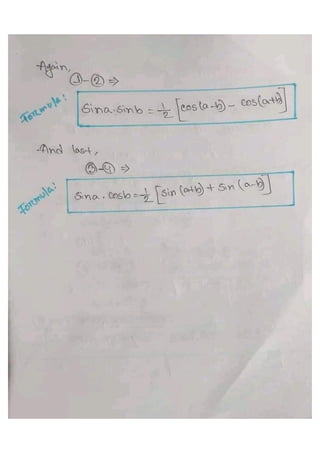 Again,
①-② ⇒
Formula: Sina.sinb = 1/2 [cos(a-b) - cos(a+b)]
And last,
③-④ ⇒
Formula: Sina. Cosb = 1/2 [Sin (a+b) + Sin (a-b)]